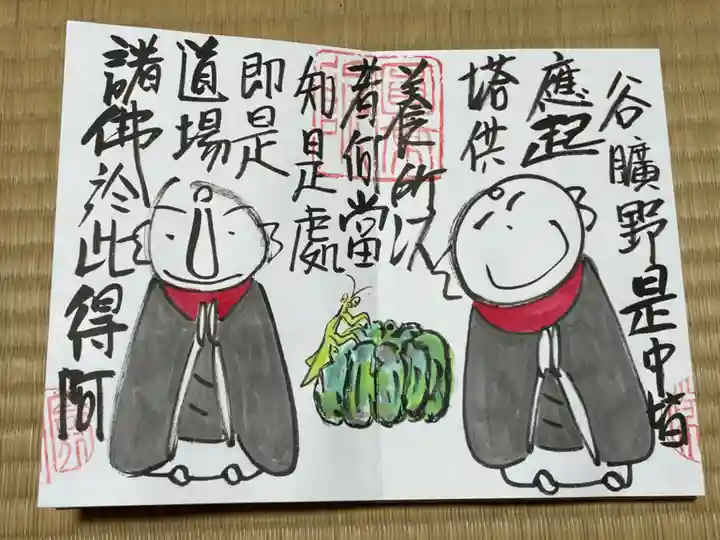 谷曠野是中皆
應起
塔供
養所以
者何當
知是處
即是
道場
諸佛於此得阿